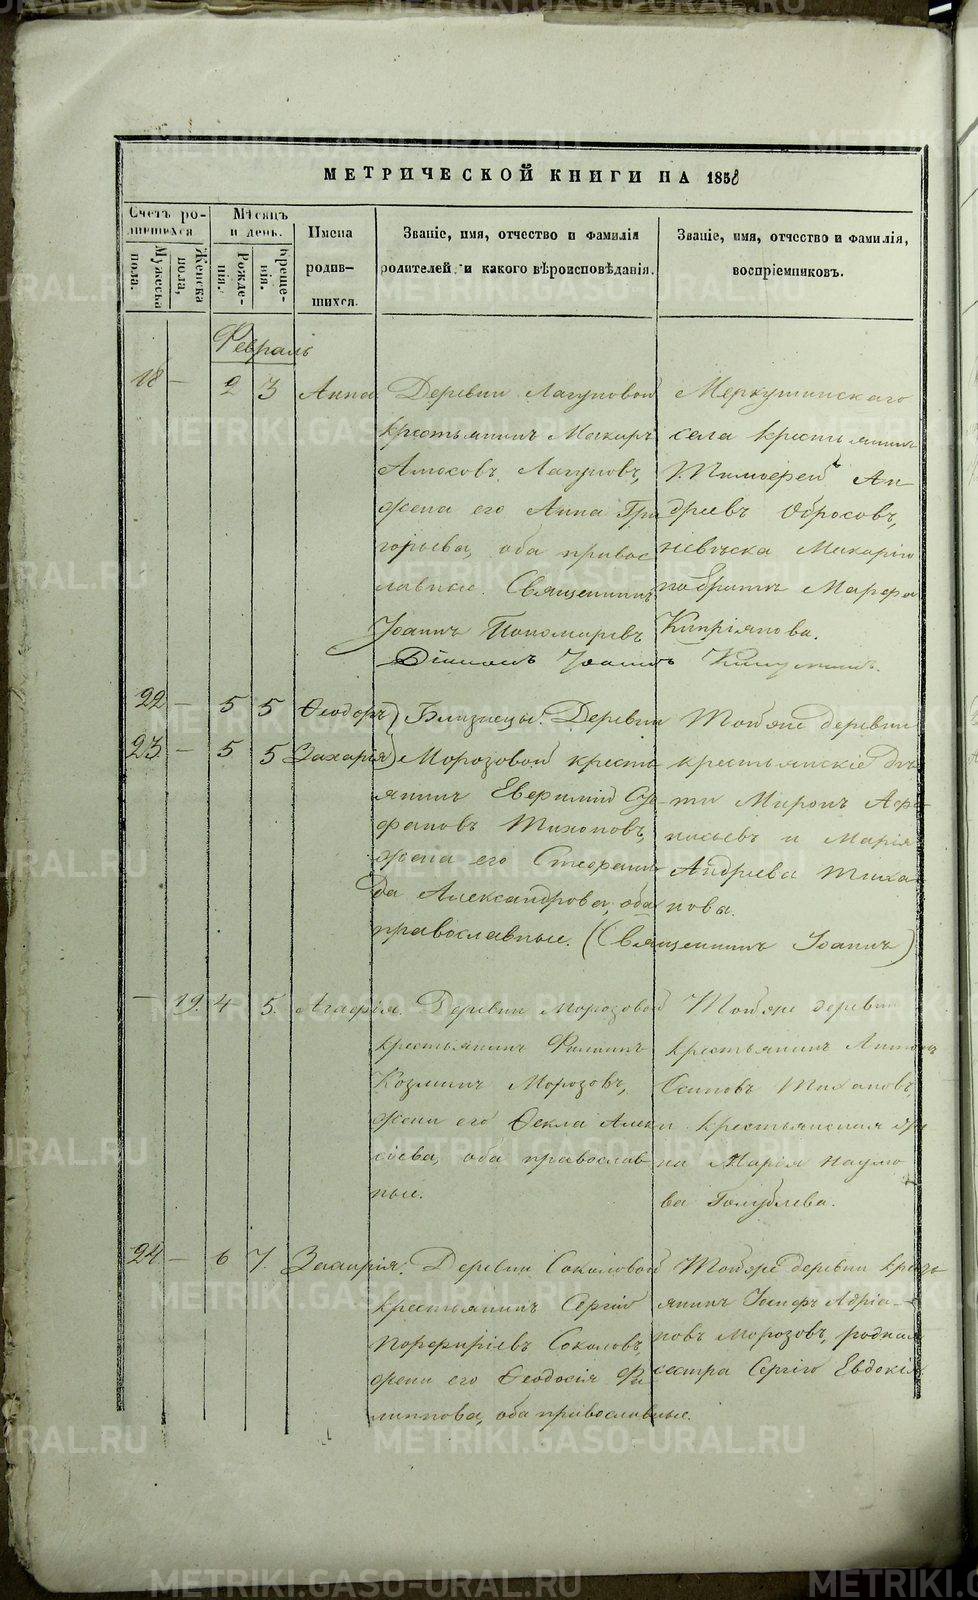 МЕТРИЧЕСКОЙ КНИГИ НА 1858
Счетъ ро-
дившихся
Мужеска
пола.
Женска
пола,
Мѣсяцъ
и день.
Рожде-
нія.
Креще-
нія.
Имена
родив-
шихся.
Званіе, имя, отчество и фамилія
родителей, и какого вѣроисповѣданія.
Званіе, имя, отчество и фамилія,
воспріемниковъ.
Февраль
18 — 2 3 Анна
Деревни Лагуновой
крестьянинъ Макаръ
Амосовъ Лагуновъ,
жена его Анна Гри
горьева, оба правос
лавные. Священникъ
Іоаннъ Пономаревъ
Діаконъ Іоаннъ
Меркушинскаго
села крестьянинъ
Тимофей Ан-
дреевъ Обросовъ,
невѣска Макарію
по братѣ Марфа
Кипріянова.
22 — 5 5 Ѳеодоръ
23 — 5 5 Захарія
Близнецы. Деревни
Морозовой кресть
янинъ Евфимій
фановъ Тихоновъ,
жена его Стефани
да Александрова, оба
православные. (Священникъ Іоаннъ)
Тойже деревни
крестьянскіе дѣ
ти Миронъ Афа-
насьевъ и Марія
Андреева Тиха
нова.
— 19. 4 5. Агафія.
Деревни Морозовой
крестьянинъ Филипъ
Козминъ Морозовъ,
жена его Ѳекла Алек
сѣева, оба православ
ные.
Тойже деревни
крестьянинъ Антонъ
Осиповъ Тихановъ,
и крестьянская
на Марія Наумо
ва Голублева.
24 — 6 7. Захарія.
Деревни Соколовой
крестьянинъ Сергій
Порфиріевъ Соколовъ,
жена его Ѳеодосія Фи
липпова, оба православные.
Тойже деревни кресть
янинъ Іосифъ Адріа-
новъ Морозовъ, родная
сестра Сергію Евдокія
METRIKI.GASO-URAL.RU